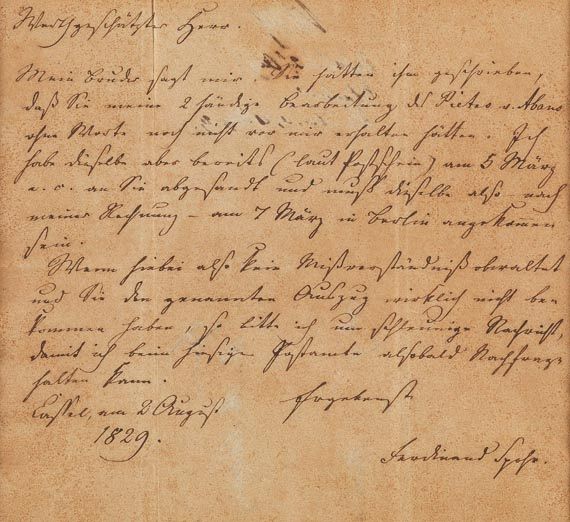 Werthgeschätzter Herr.
Mein Bruder sagt mir, Sie hätten ihm geschrieben,
daß Sie meine 2händige Bearbeitung des Pietro v. Abano
ohne Worte noch nicht von mir erhalten hätten. Ich
habe dieselbe aber bereits (laut Postschein) am 5 März
a. c. an Sie abgesandt und muß dieselbe also – nach
meiner Rechnung – am 7 März in Berlin angekommen
sein.
Wenn hiebei also kein Mißverständniß obwaltet
und Sie den genannten Auszug wirklich nicht be-
kommen haben, so bitte ich um schleunige Nachricht,
damit ich beim hiesigen Postamte alsobald Nachfrage
halten kann.
Cassel, am 2 August
1829.
Ergebenst
Ferdinand Spohr.